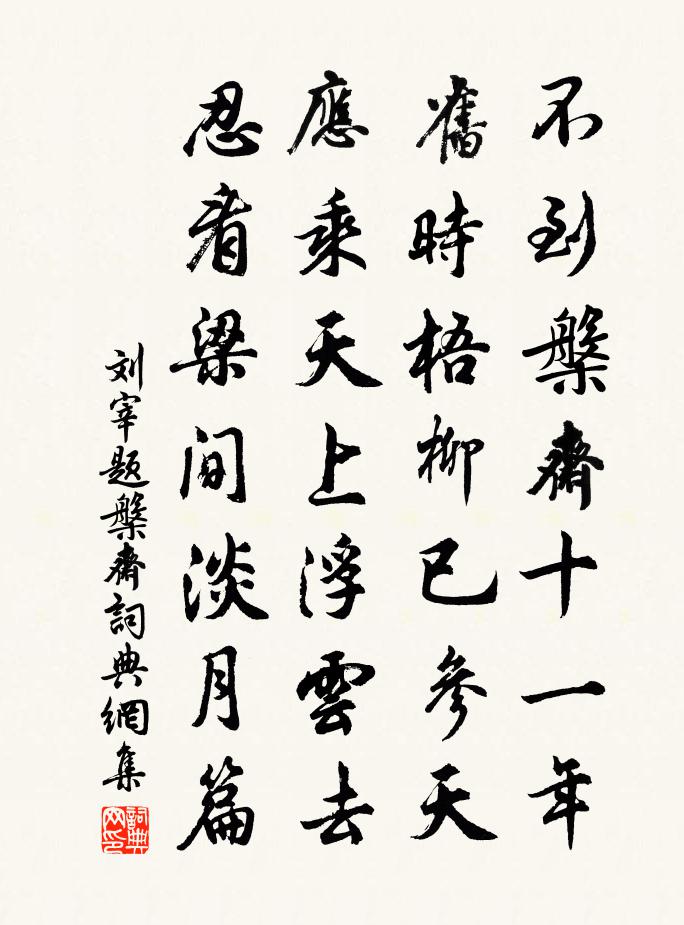 不到槃齋十一年
舊時梧柳已參天
應乘天上浮雲去
忍看梁間淡月篇
刘宰題槃齋詞典網集
詞典网印